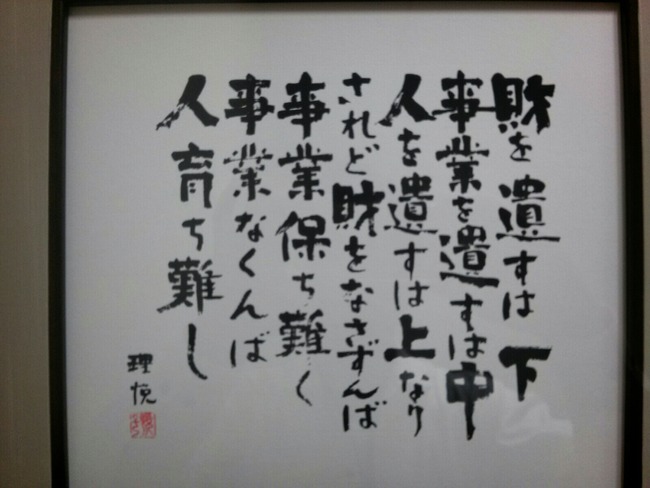 財を遺すは下
事業を遺すは中
人を遺すは上なり
されど財をなさずんば
事業保ち難く
事業なくんば
人育ち難し
理悦